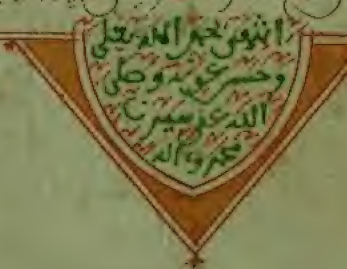 انتهى بحمد الله تعلى
وحسن عونه وصلى
الله على سيدنا
محمد وآله